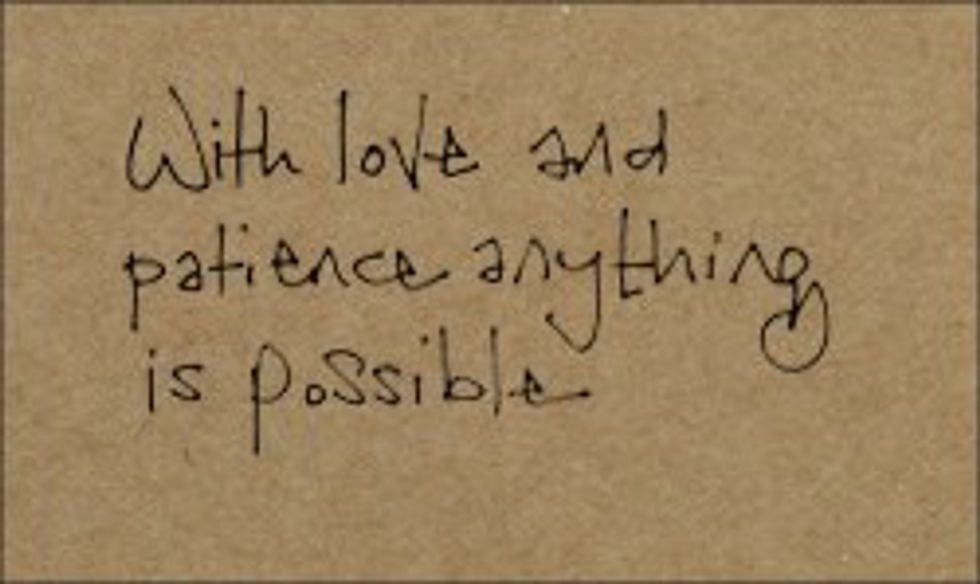 With love and
patience anything
is possible